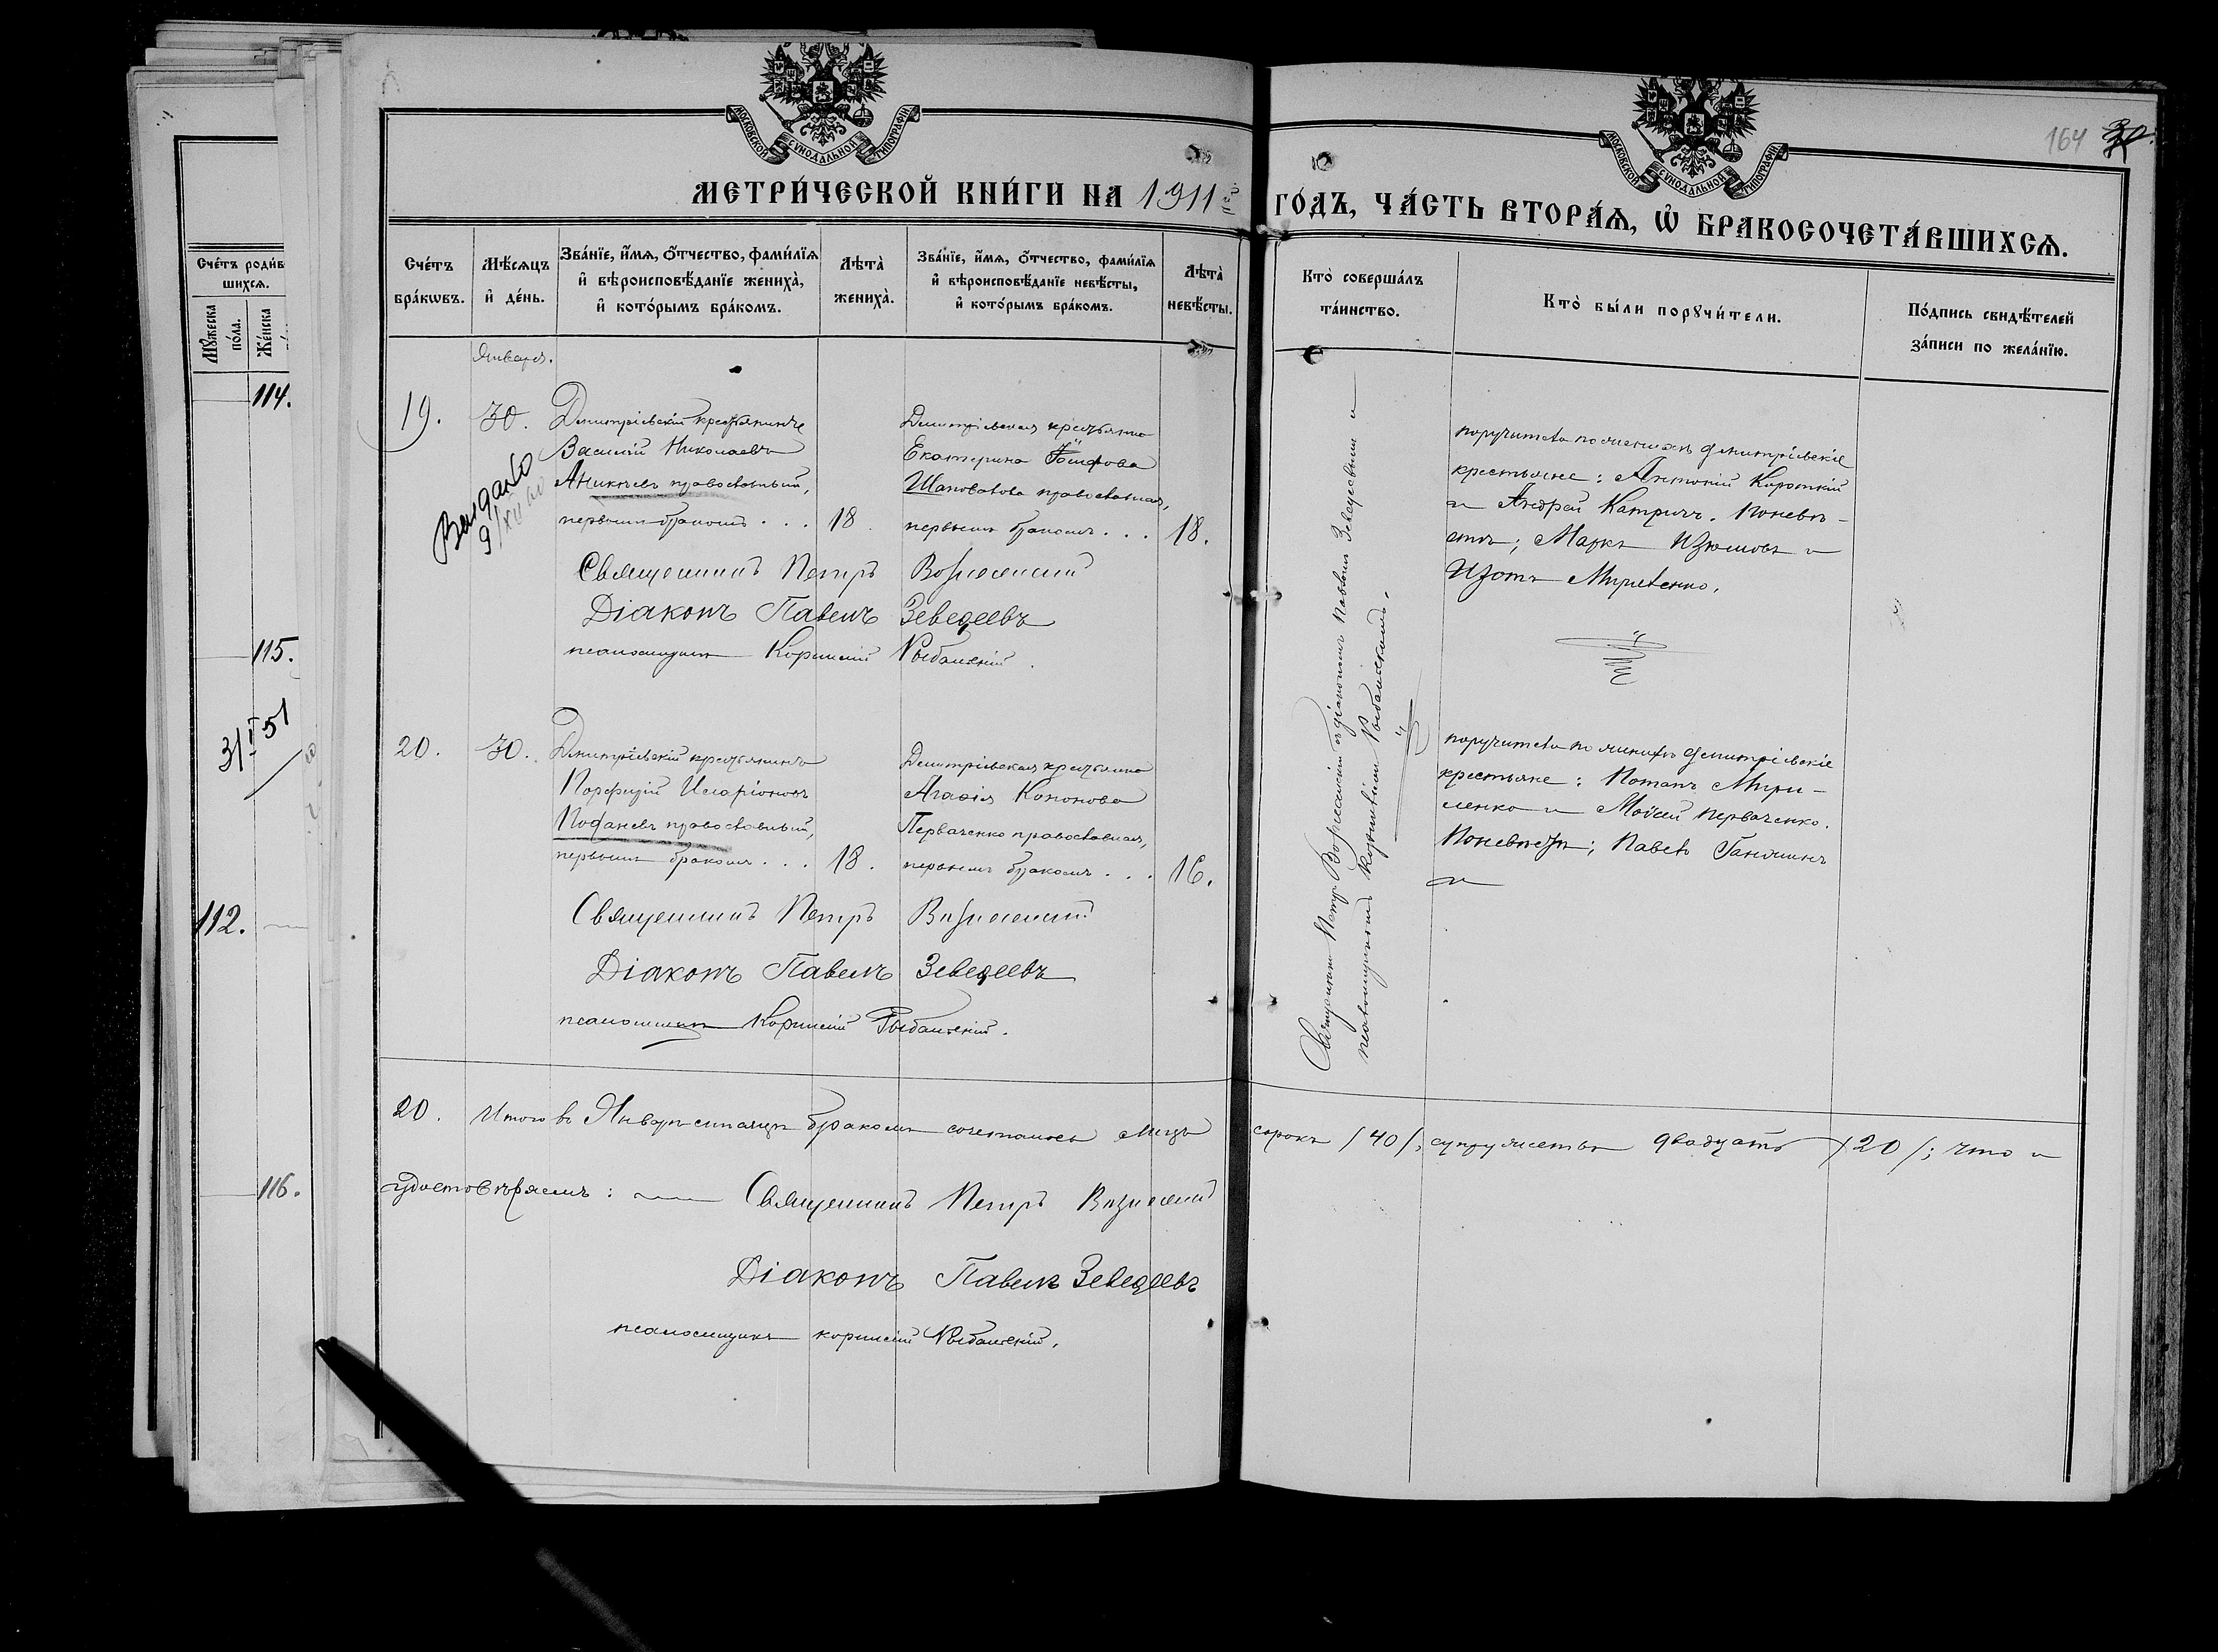 Счётъ родив
шихся.
Мужеска
пола.
Женска
114.
115.
3/I 51
112.
116.
МОСКОВСКОЙ СУНОДАЛЬНОЙ ТИПОГРАФІИ
МЕТРИЧЕСКОЙ КНИГИ НА 1911й
Счётъ
браковъ.
Мѣсяцъ
и день.
Званіе, имя, отчество, фамилія
и вѣроисповѣданіе жениха,
и которымъ бракомъ.
Лѣта
жениха.
Званіе, имя, отчество, фамилія
и вѣроисповѣданіе невѣсты,
и которымъ бракомъ.
Лѣта
невѣсты.
Января.
19.
30.
Дмитріевскій крестьянинъ
Василій Николаевъ
Аникѣевъ православный,
первымъ бракомъ . . .
18.
Дмитріевская крестьянка
Екатерина
Шаповалова православная,
первымъ бракомъ . . .
18.
9/XII
Священникъ Петръ Вознесенскій
Діаконъ Павелъ Зеведеевъ
псаломщикъ Корнилій Рыбальскій.
20.
30.
Дмитріевскій крестьянинъ
Порфирій Иларіоновъ
православный,
первымъ бракомъ . . .
18.
Дмитріевская крестьянка
Агафія Кононова
Перваченко православная,
первымъ бракомъ . . .
16.
Священникъ Петръ Вознесенскій
Діаконъ Павелъ Зеведеевъ
псаломщикъ Корнилій Рыбальскій.
20. Итого въ Январѣ мѣсяцѣ бракомъ сочеталось лицъ
удостовѣряемъ: Священникъ Петръ Вознесенскій
Діаконъ Павелъ Зеведеевъ
псаломщикъ Корнилій Рыбальскій.
164
30.
МОСКОВСКОЙ СУНОДАЛЬНОЙ ТИПОГРАФІИ
ГОДЪ, ЧАСТЬ ВТОРАЯ, Ѿ БРАКОСОЧЕТАВШИХСЯ.
Кто совершалъ
таинство.
Кто были поручители.
Подпись свидѣтелей
записи по желанію.
Священникъ Петръ Вознесенскій съ діакономъ Павломъ Зеведеевымъ и
псаломщикомъ Корниліемъ Рыбальскимъ.
поручители по женихѣ дмитріевскіе
крестьяне: Антоній Короткій
и Андрей Катричъ. По невѣ-
стѣ; Маркъ Изюмовъ и
Изотъ Мириленко.
поручители по женихѣ дмитріевскіе
крестьяне: Потапъ Мири-
ленко и Моѵсей Перваченко.
По невѣстѣ; Павелъ
и
сорокъ /40/, супружествъ двадцать /20/; что и